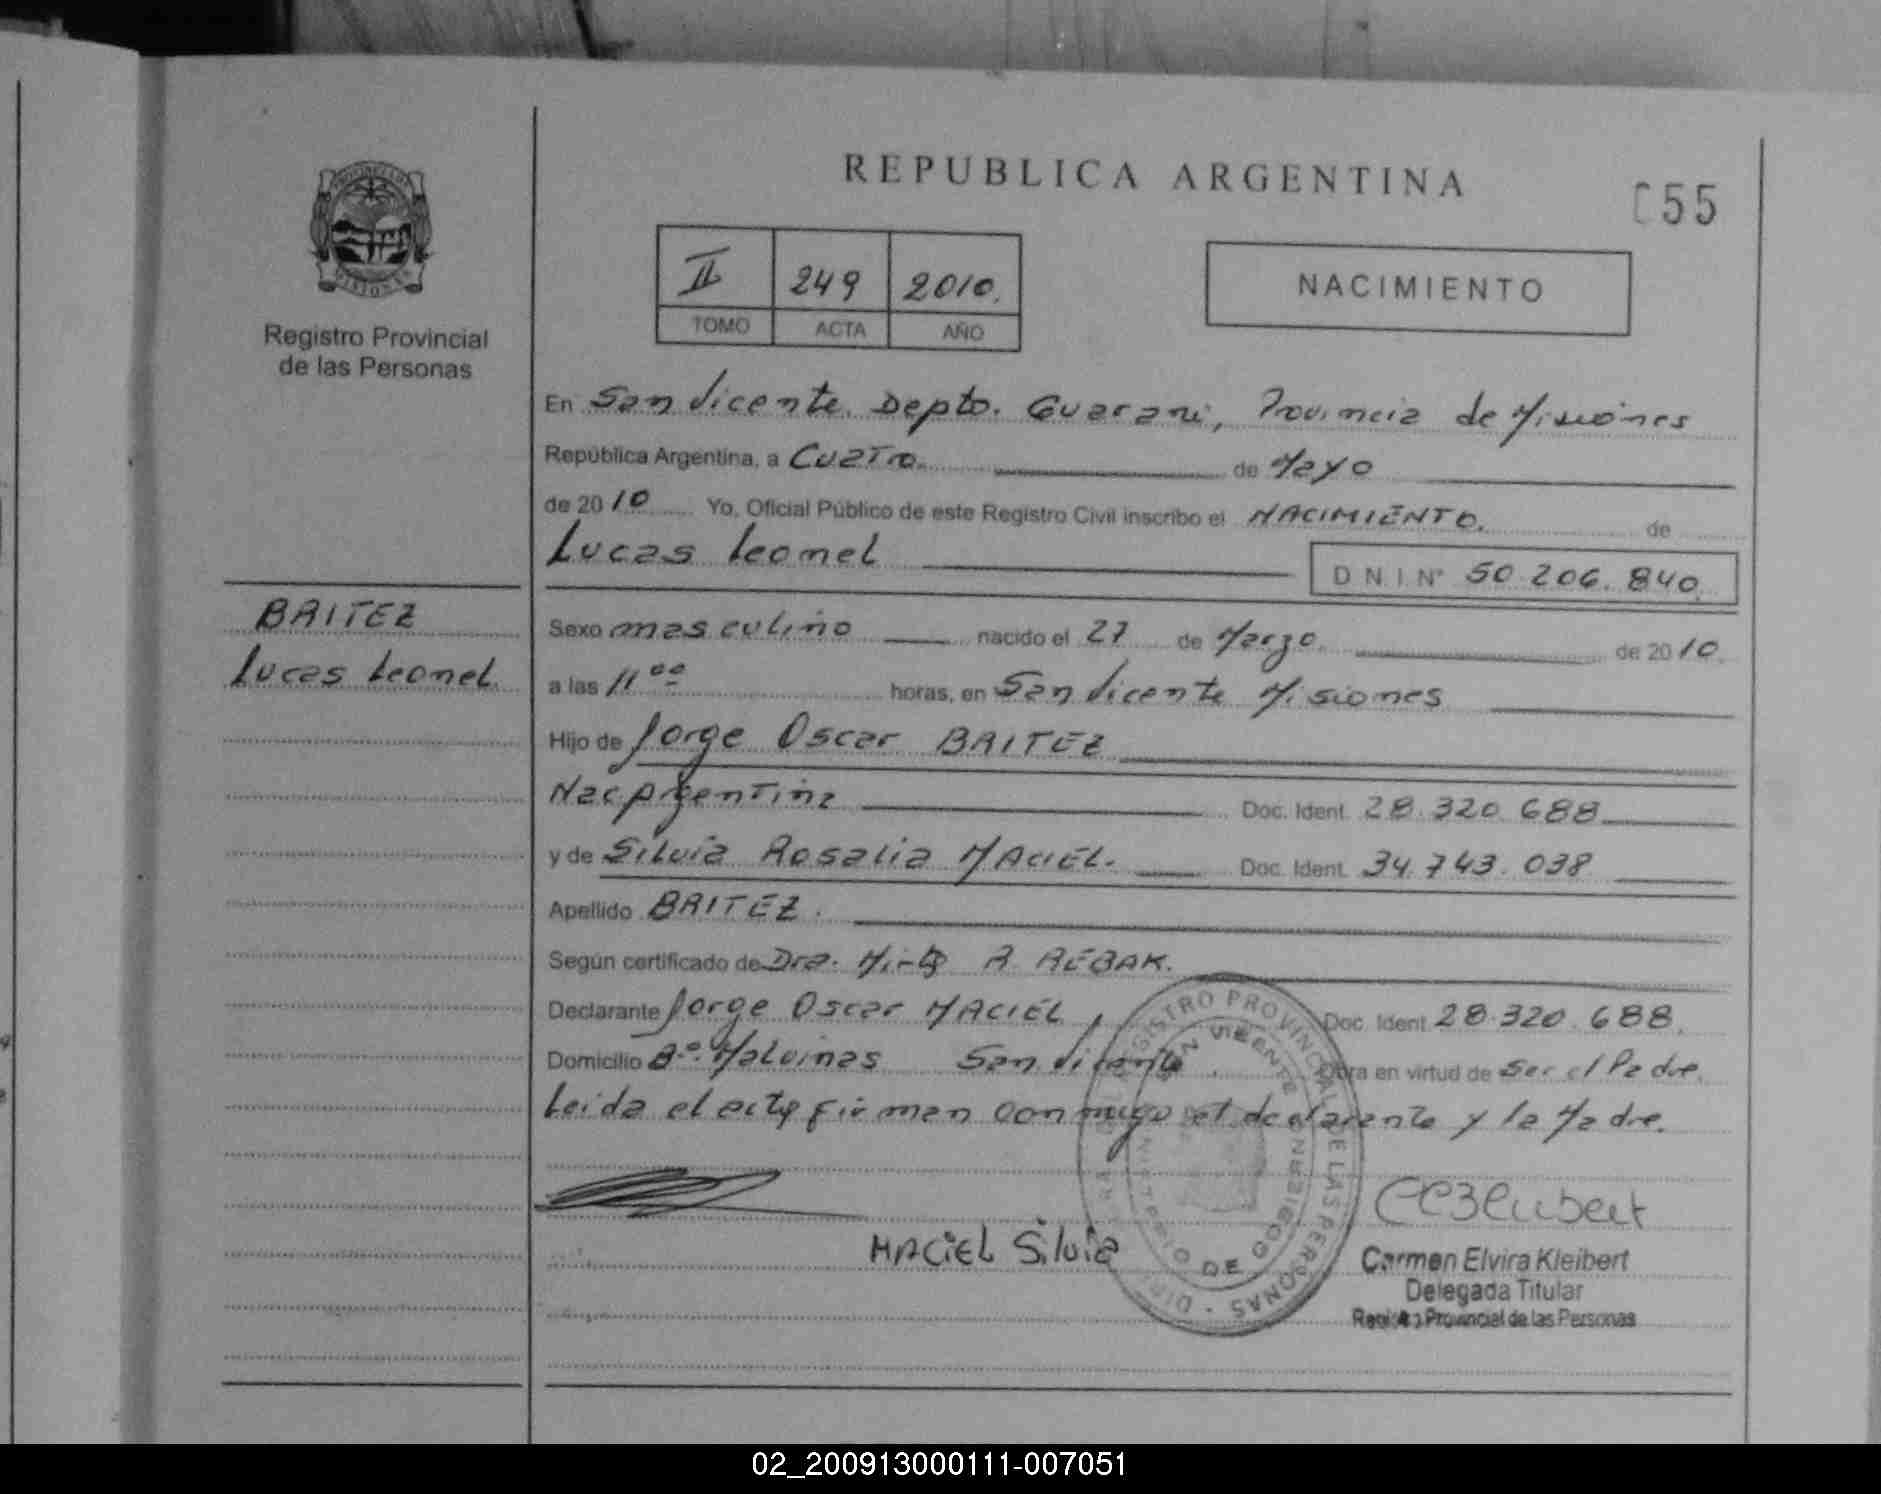 REPUBLICA ARGENTINA
055
PROVINCIA DE
MISIONES
Registro Provincial
de las Personas
II 249 2010.
TOMO ACTA AÑO
NACIMIENTO
En San Vicente. Depto. Guarani, Provincia de Misiones
República Argentina, a Cuatro. de Mayo
de 2010 Yo, Oficial Público de este Registro Civil inscribo el NACIMIENTO. de
Lucas Leonel D.N.I.Nº 50.206.840.
BRITEZ
Lucas Leonel.
Sexo masculino nacido el 27 de Marzo. de 2010.
a las 11 00 horas, en San Vicente Misiones
Hijo de Jorge Oscar BRITEZ
Nac. Argentina Doc. Ident. 28.320.688
y de Silvia Rosalia MACIEL. Doc. Ident. 34.743.038
Apellido BRITEZ.
Según certificado de Dra. R. REBAK.
Declarante Jorge Oscar MACIEL, Doc. Ident. 28.320.688.
Domicilio Bº Malvinas San Vicente. Obra en virtud de Ser el Padre.
Leida el acta firman conmigo el declarante y la Madre.
MACIEL Silvia
REGISTRO PROVINCIAL DE LAS PERSONAS
SAN VICENTE
Carmen Elvira Kleibert
Delegada Titular
Registro Provincial de las Personas
02_200913000111-007051